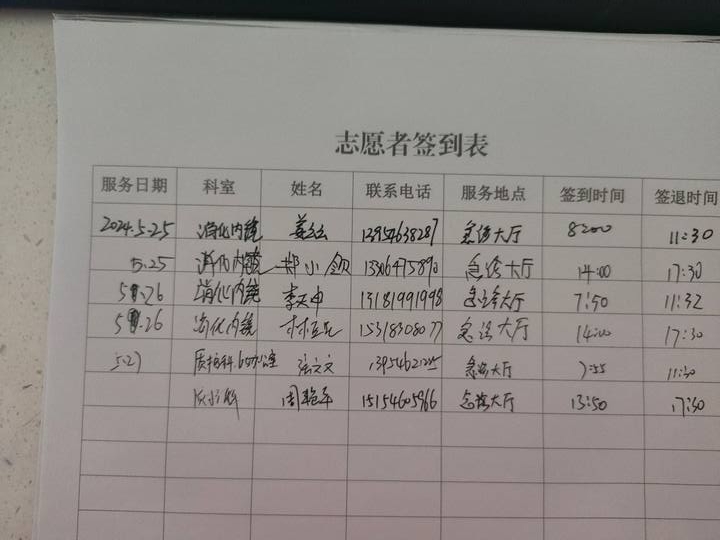 志愿者签到表
服务日期 科室 姓名 联系电话 服务地点 签到时间 签退时间
2024.5.25 消化内镜 13954638287 急诊大厅 8:00 11:30
5.25 消化内镜 郑小 13306475890 急诊大厅 14:00 17:30
5.26 消化内镜 李天中 13181991998 急诊大厅 7:50 11:32
5.26 消化内镜 15318308077 急诊大厅 14:00 17:30
5.27 质控科 张文文 急诊大厅 7:55 11:30
质控科 周艳军 15154605966 急诊大厅 13:50 17:30